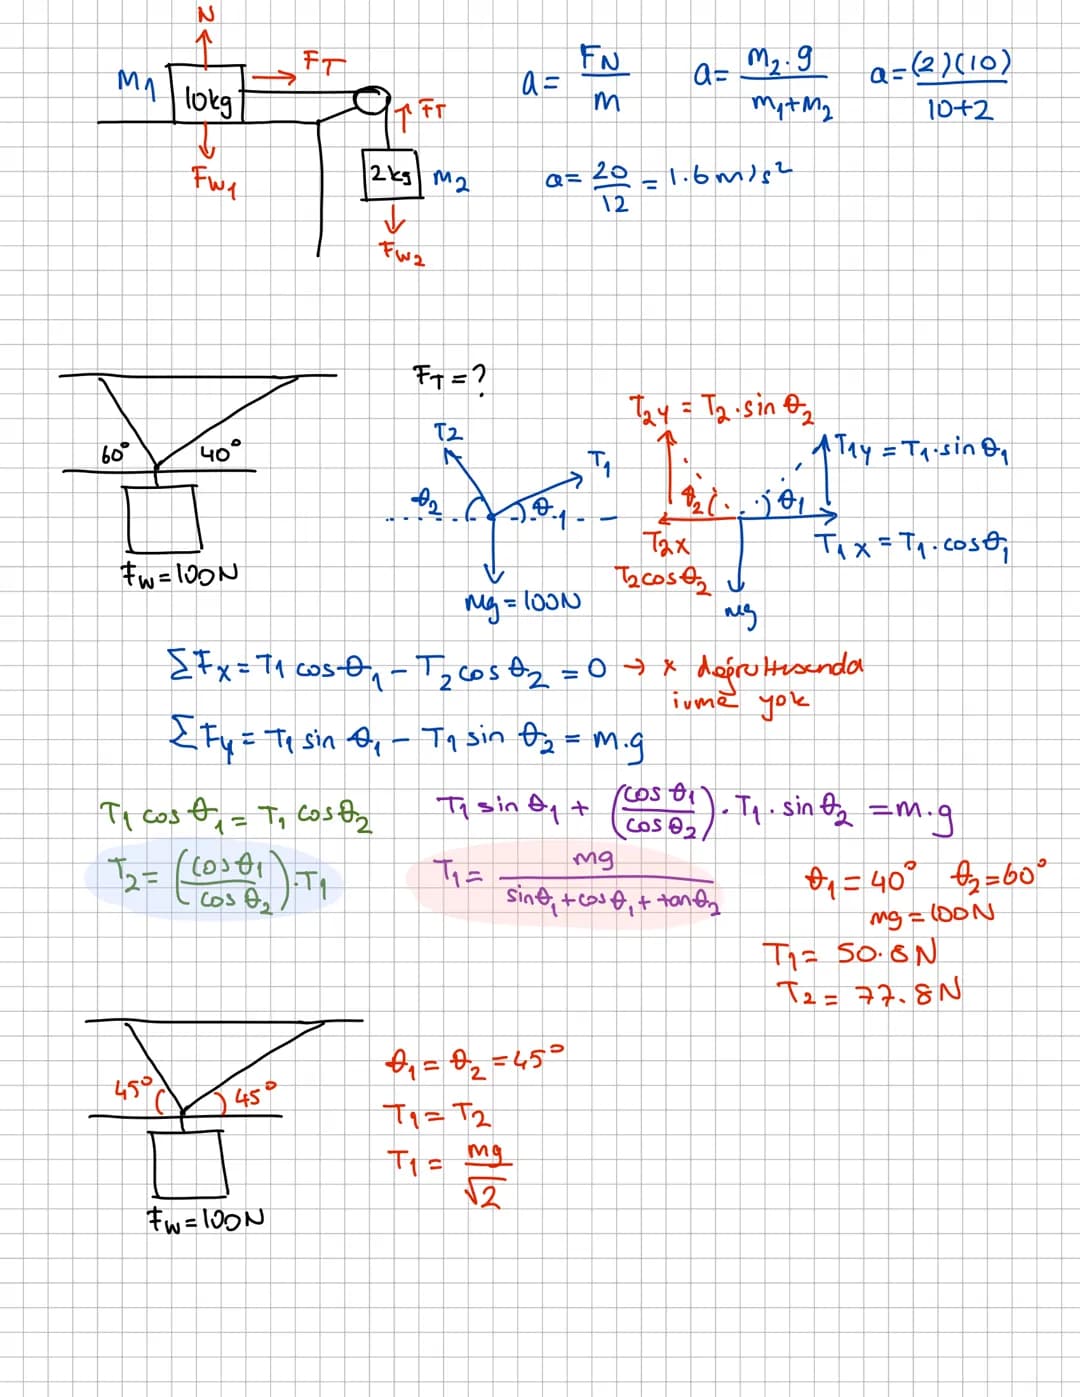 N
M1 10kg FT
FT
Fw1
2kg M2
Fw2
a = FN / m
a = m2.g / m1+m2
a = (2)(10) / 10+2
a = 20 / 12 = 1.6 m/s²
FT = ?
60° 40°
Fw = 100N
T2
T1
θ2 θ1
mg = 100N
T2y = T2.sin θ2
T1y = T1.sin θ1
θ2 θ1
T2x
T2cosθ2
T1x = T1.cosθ1
mg
ΣFx = T1 cosθ1 - T2 cosθ2 = 0 → x doğrultusunda
ivme yok
ΣFy = T1 sin θ1 - T1 sin θ2 = m.g
T1 cosθ1 = T1 cosθ2
T2 = (cosθ1 / cosθ2).T1
T1 sin θ1 + (cos θ1 / cos θ2).T1.sin θ2 = m.g
T1 = mg / sinθ1 + cosθ1 + tanθ2
θ1 = 40° θ2 = 60°
mg = 100N
T1 = 50.8N
T2 = 77.8N
45° 45°
Fw = 100N
θ1 = θ2 = 45°
T1 = T2
T1 = mg / √2